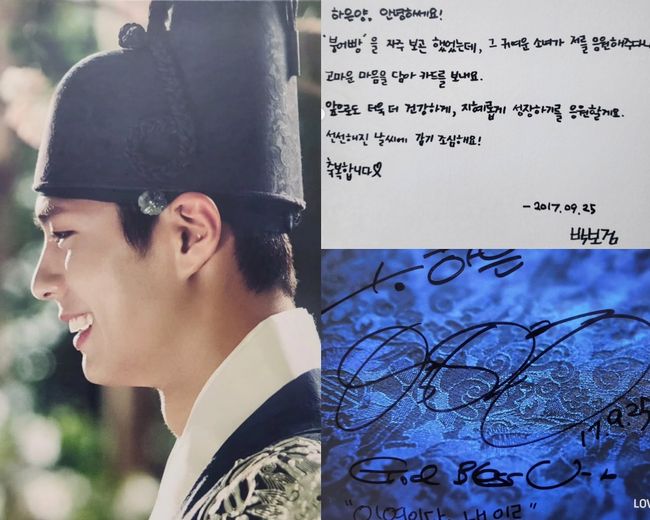 하은양, 안녕하세요!
'붕어빵'을 자주 보곤 했었는데, 그 귀여운 소녀가 저를 응원해주다니
고마운 마음을 담아 카드를 보내요.
앞으로도 더욱 더 건강하게, 지혜롭게 성장하기를 응원할게요.
선선해진 날씨에 감기 조심해요!
축복합니다♡
- 2017.09.25
박보검
하은
17.9.25
God Bless U
"이영이다, 내 이름"
LOV